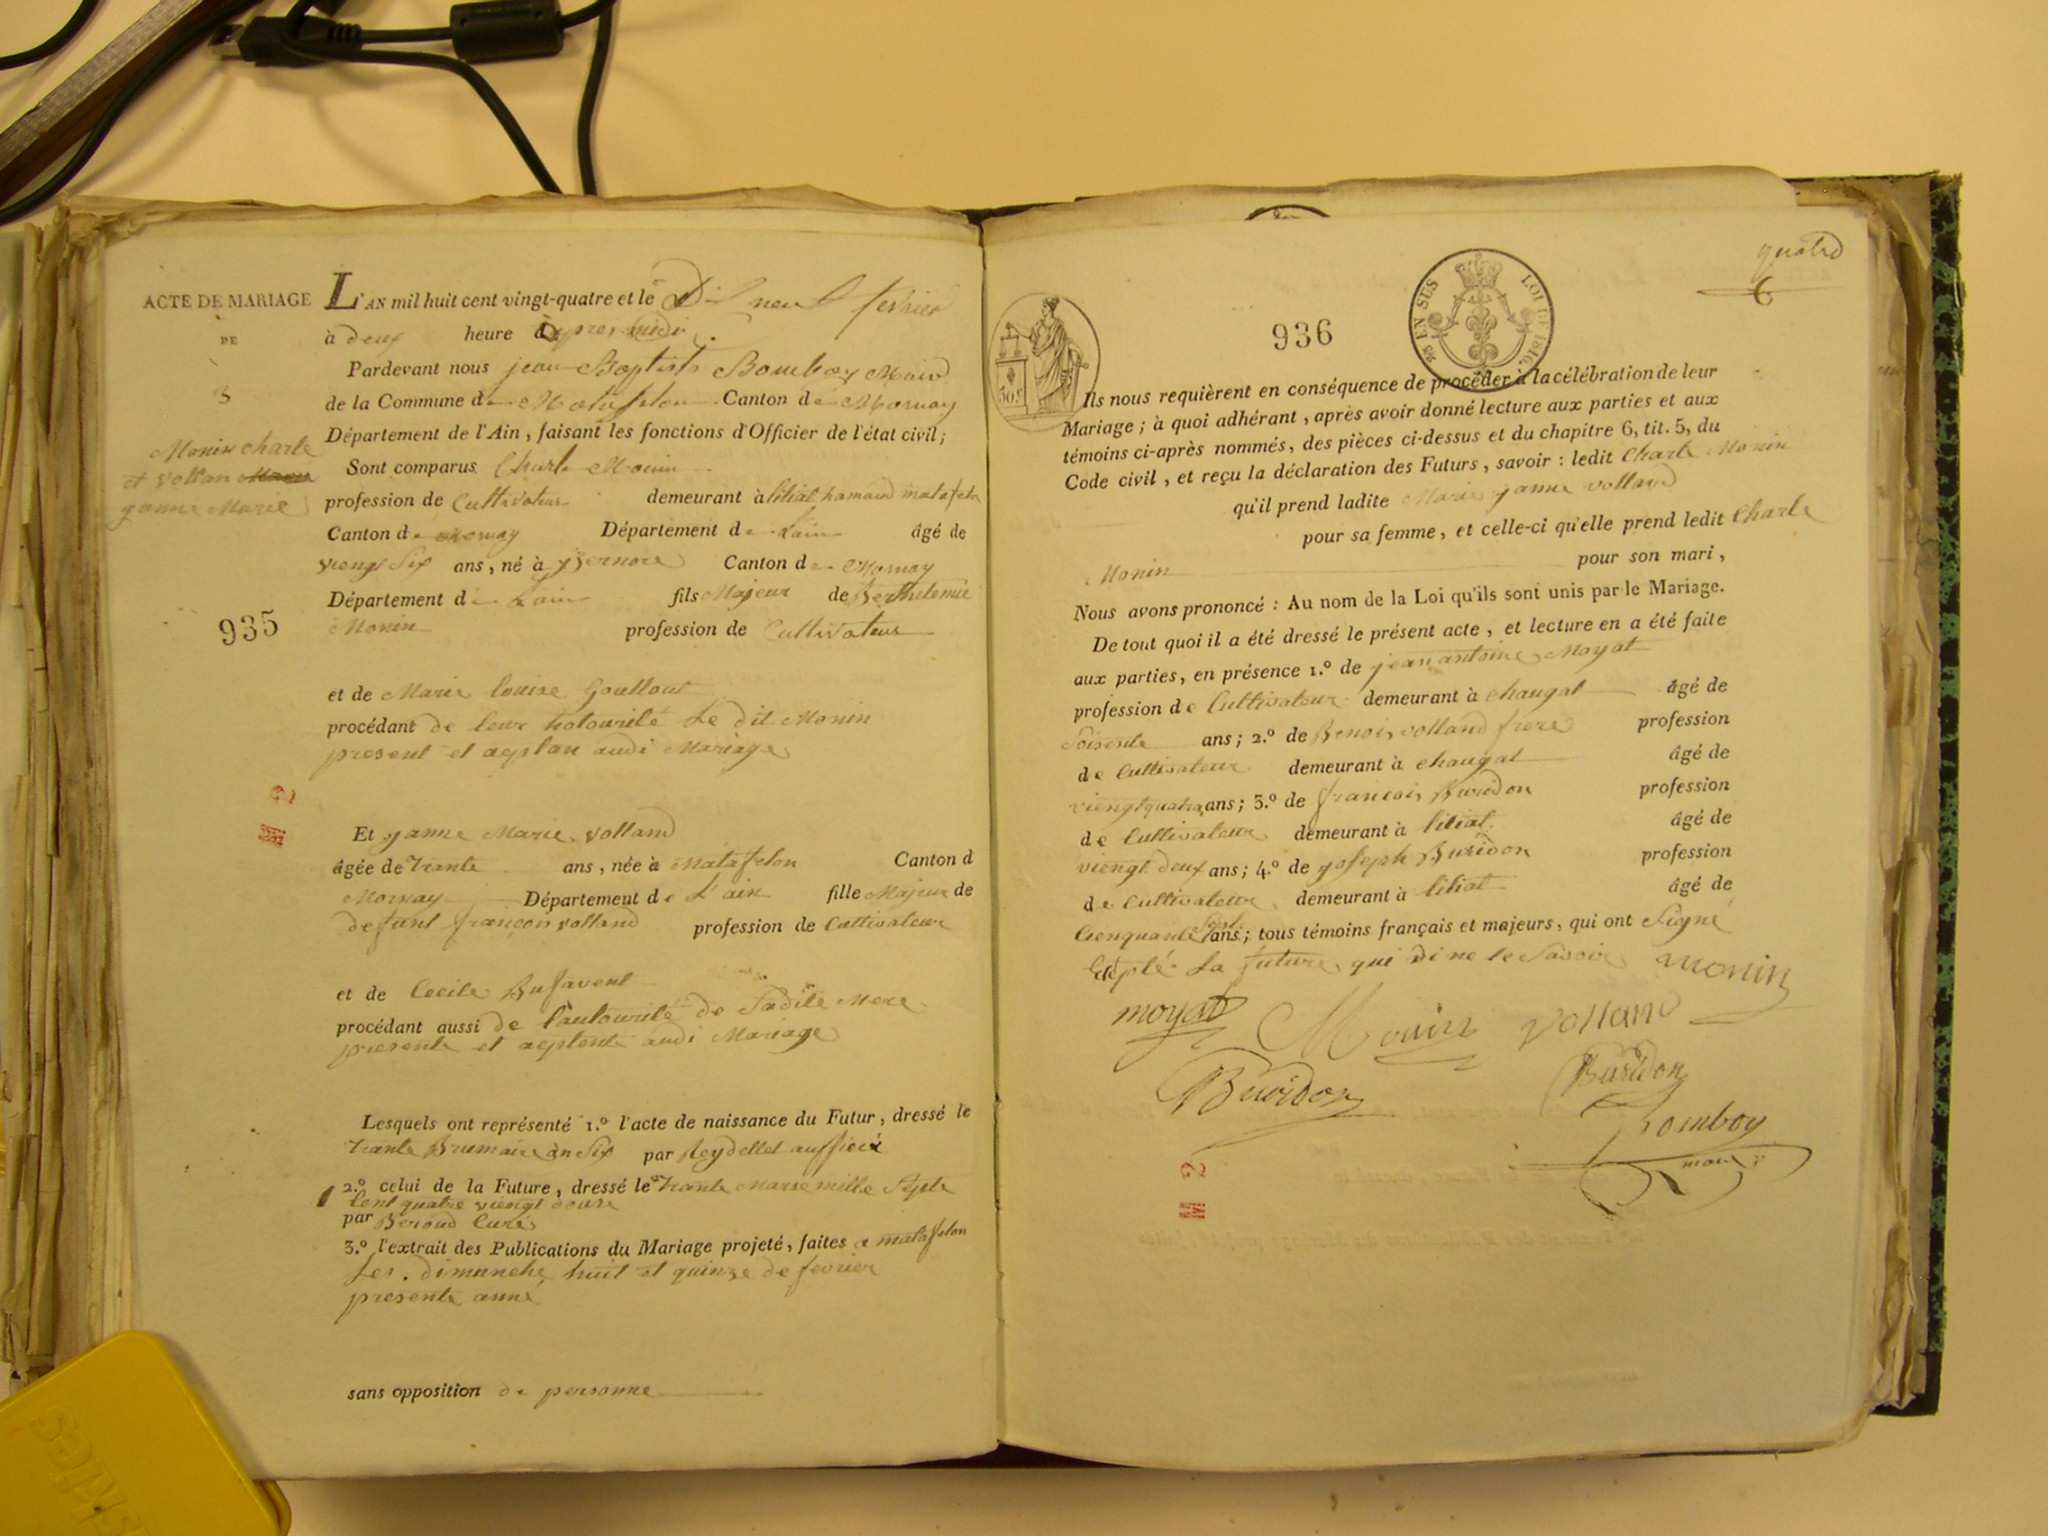 ACTE DE MARIAGE
DE
3
Monin charle
et vollan
janne Marie
935
L'AN mil huit cent vingt-quatre et le Dix neuf fevrier
à deux heure après midi
Pardevant nous jean Baptiste Bomboy Maire
de la Commune de Matafelon Canton de Mornay
Département de l'Ain, faisant les fonctions d'Officier de l'état civil;
Sont comparus Charle Monin
profession de Cultivateur demeurant à liliat hamaud matafelon
Canton de Mornay Département de Lain âgé de
viengt Six ans, né à yzernore Canton de Mornay
Département de Lain fils Majeur de Berthelemie
Monin profession de Cultivateur
et de Marie louise Goullout
procédant de leur hotourité Le dit Monin
present et aceptan audi Mariage
Et janne Marie volland
âgée de trante ans, née à Matafelon Canton d
Mornay Département de L'ain fille Majeur de
defunt françois volland profession de Cultivateur
et de Cecile Bufavent
procédant aussi de l'autourité de Sadite Mere
presente et aceptente audi Mariage
Lesquels ont représenté 1.º l'acte de naissance du Futur, dressé le
trante Brumaire an Six par Reydellet aufficié
2.º celui de la Future, dressé le trante Marse mille Septe
Cent quatre viengt douse
par Beroud Curé
3.º l'extrait des Publications du Mariage projeté, faites a matafelon
Les. dimanche huit et quinze de fevrier
presente anné
sans opposition de personne
quatre
6
936
25 EN SUS LOI DE 1816.
50 C
Ils nous requièrent en conséquence de procéder à la célébration de leur
Mariage; à quoi adhérant, après avoir donné lecture aux parties et aux
témoins ci-après nommés, des pièces ci-dessus et du chapitre 6, tit. 5, du
Code civil, et reçu la déclaration des Futurs, savoir: ledit Charle Monin
qu'il prend ladite Marie janne volland
pour sa femme, et celle-ci qu'elle prend ledit Charle
Monin pour son mari,
Nous avons prononcé: Au nom de la Loi qu'ils sont unis par le Mariage.
De tout quoi il a été dressé le présent acte, et lecture en a été faite
aux parties, en présence 1.º de jean antoine Moyat
profession de Cultivateur demeurant à chaugat âgé de
Soisente ans; 2.º de Benois volland frere profession
de Cultivateur demeurant à chaugat âgé de
viengt quatre ans; 3.º de francois Buridon profession
de Cultivateur demeurant à liliat. âgé de
viengt deux ans; 4.º de joseph Buridon profession
de Cultivateur demeurant à liliat âgé de
Cienquante Sept ans; tous témoins français et majeurs, qui ont Signé
Exepté La future qui di ne le Savoir monin
moyat Monin volland
Buridon Buridon
Bomboy
maire